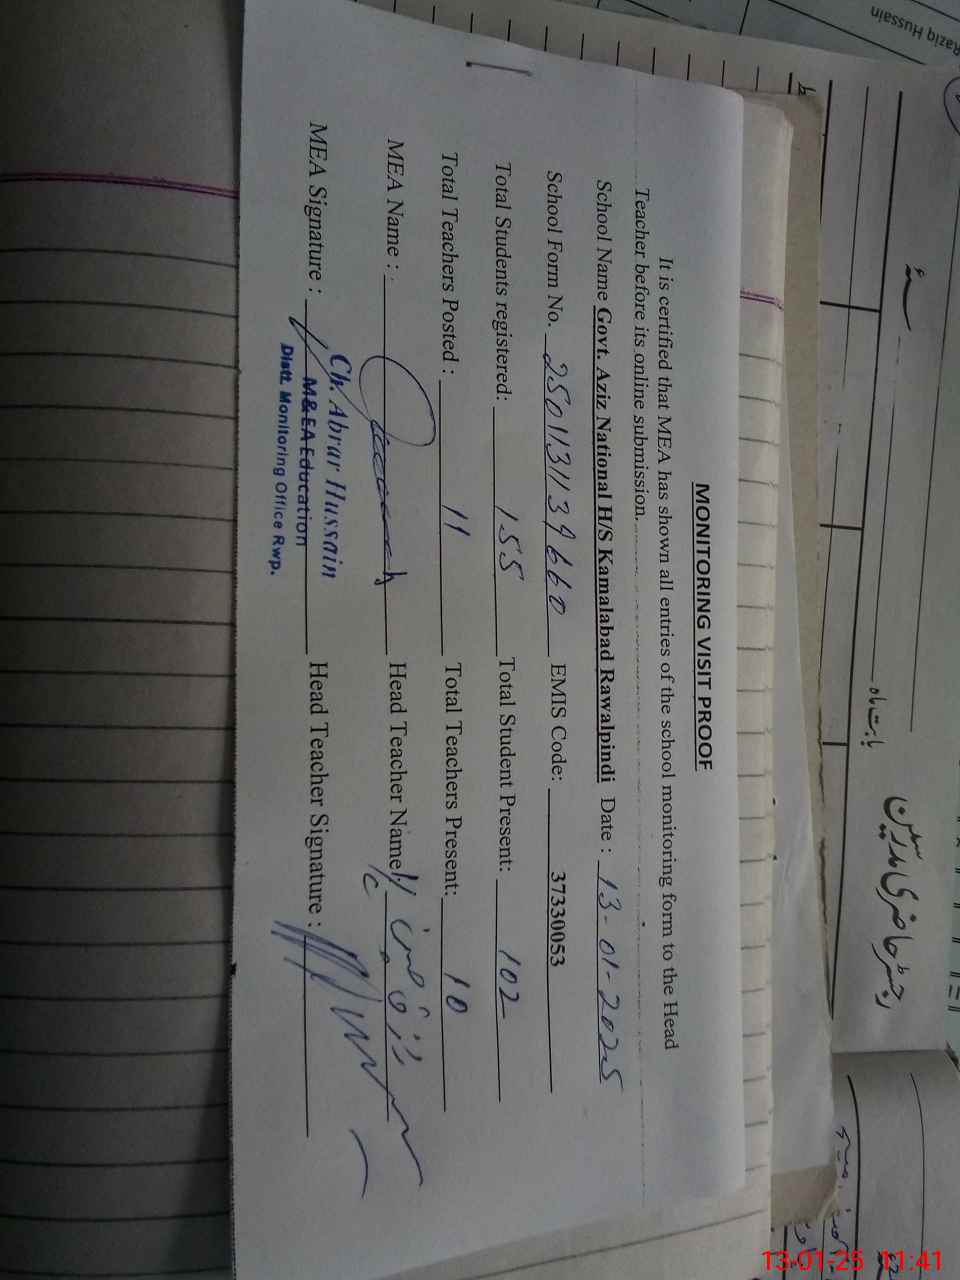 MONITORING VISIT PROOF
It is certified that MEA has shown all entries of the school monitoring form to the Head
Teacher before its online submission.
School Name Govt. Aziz National H/S Kamalabad Rawalpindi Date : 13-01-2025
School Form No. 2501131139660 EMIS Code: 37330053
Total Students registered: 155 Total Student Present: 102
Total Teachers Posted : 11 Total Teachers Present: 10
MEA Name : Head Teacher Name
MEA Signature : Head Teacher Signature :
Ch. Abrar Hussain
M&EA Education
Distt. Monitoring Office Rwp.
Raziq Hussain
رجسٹر حاضری مدرسین
بابت ماہ
13-01-25 11:41